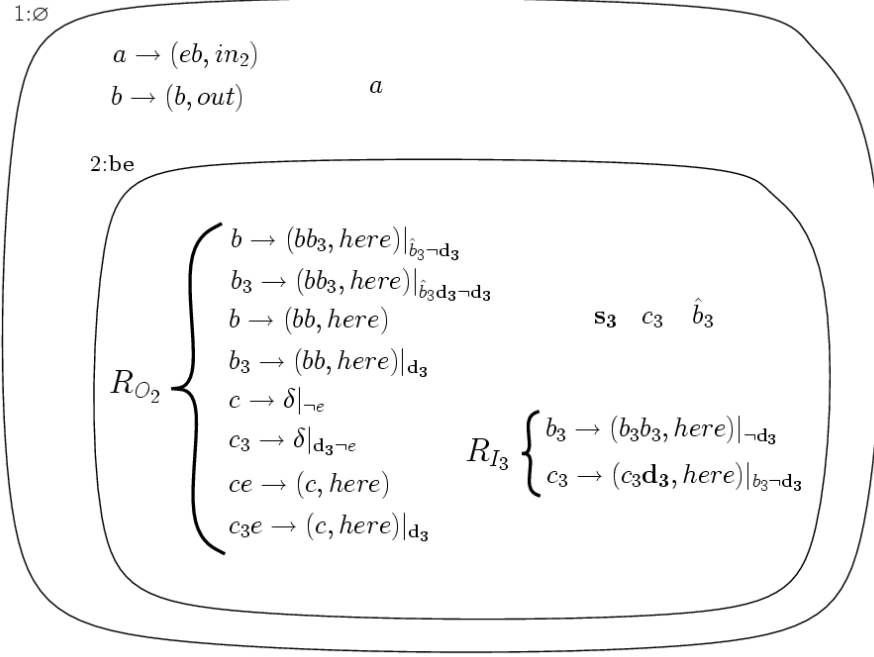 1:∅
a → (eb, in₂)
b → (b, out)
a
2:be
R_{O₂}
b → (bb₃, here)|_{b̂₃¬d₃}
b₃ → (bb₃, here)|_{b̂₃d₃¬d₃}
b → (bb, here)
b₃ → (bb, here)|_{d₃}
c → δ|_{¬e}
c₃ → δ|_{d₃¬e}
ce → (c, here)
c₃e → (c, here)|_{d₃}
s₃ c₃ b̂₃
R_{I₃}
b₃ → (b₃b₃, here)|_{¬d₃}
c₃ → (c₃d₃, here)|_{b₃¬d₃}